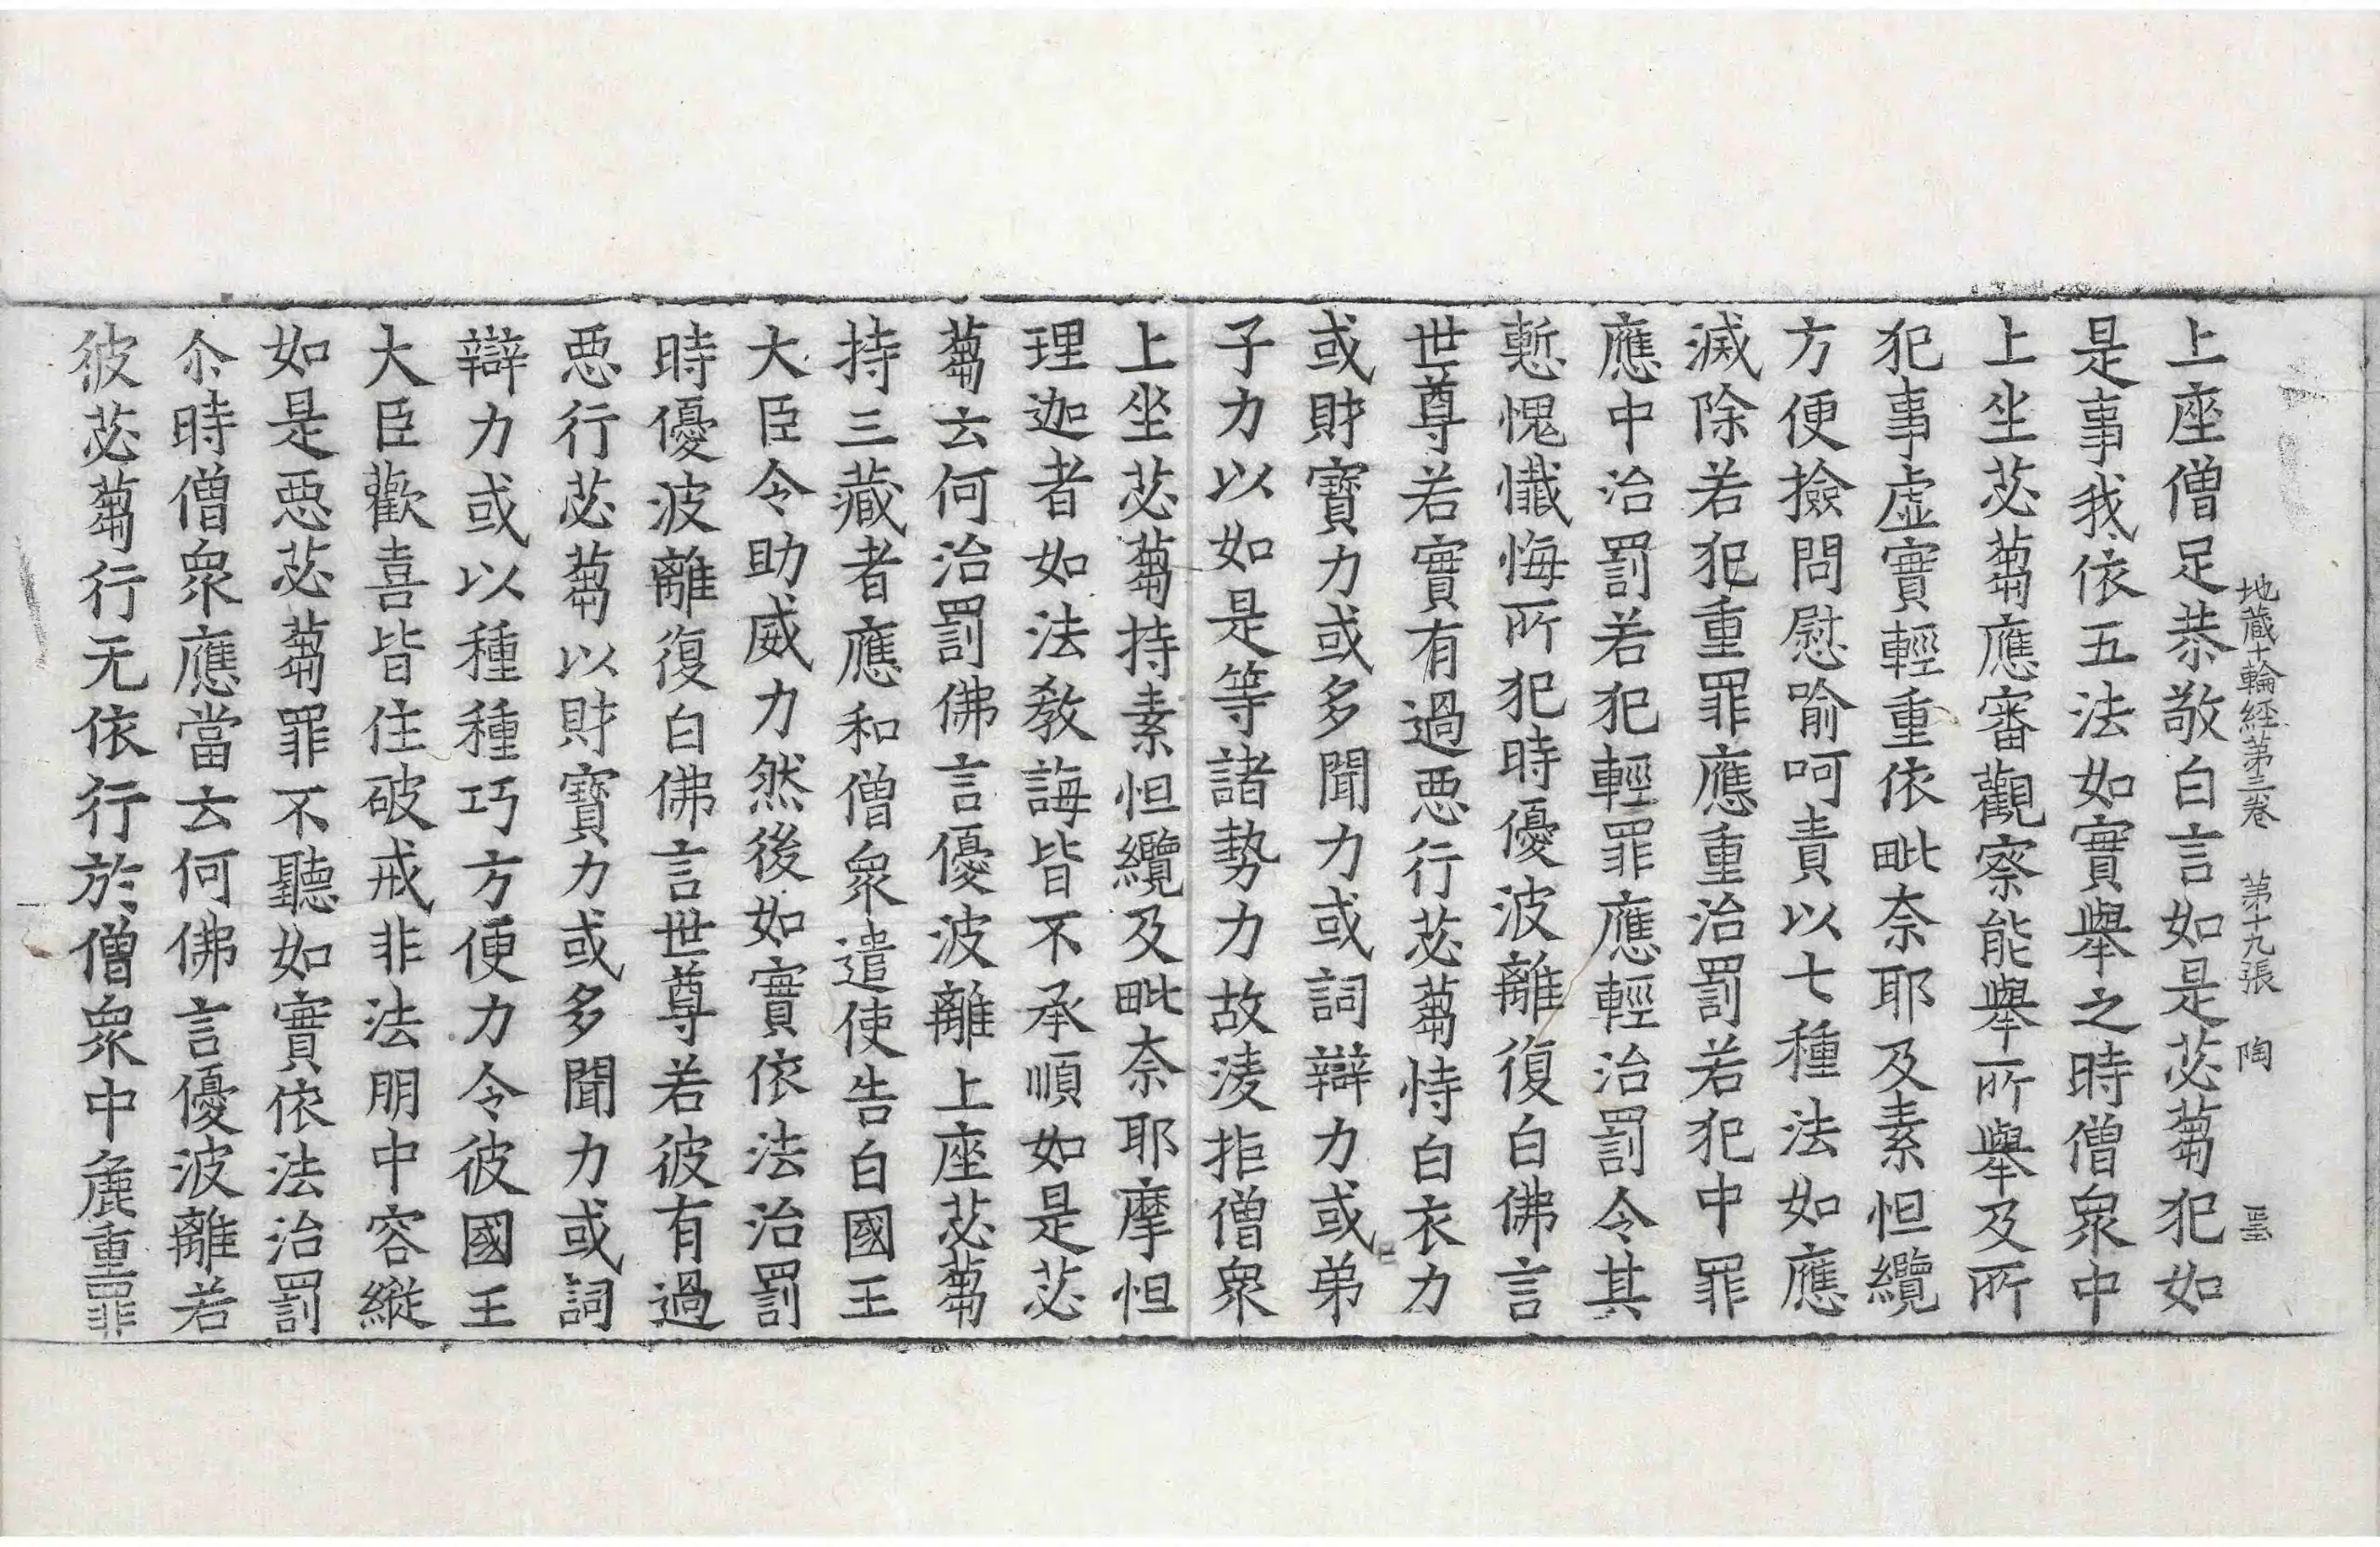 地藏十輪経第三卷 第十九張 陶
上座僧足恭敬白言如是苾蒭犯如
是事我依五法如實舉之時僧衆中
上坐苾蒭應審觀察能舉所舉及所
犯事虛實輕重依毗奈耶及素怛纜
方便撿問慰喻呵責以七種法如應
滅除若犯重罪應重治罰若犯中罪
應中治罰若犯輕罪應輕治罰令其
慙愧懴悔所犯時優波離復白佛言
世尊若實有過惡行苾蒭恃白衣力
或財寶力或多聞力或詞辯力或弟
子力以如是等諸勢力故淩拒僧衆
上坐苾蒭持素怛纜及毗奈耶摩怛
理迦者如法教誨皆不承順如是苾
蒭云何治罰佛言優波離上座苾蒭
持三藏者應和僧衆遣使告白國王
大臣令助威力然後如實依法治罰
時優波離復白佛言世尊若彼有過
惡行苾蒭以財寶力或多聞力或詞
辯力或以種種巧方便力令彼國王
大臣歡喜皆住破戒非法朋中容縱
如是惡苾蒭罪不聽如實依法治罰
尒時僧衆應當云何佛言優波離若
彼苾蒭行无依行於僧衆中麁重罪